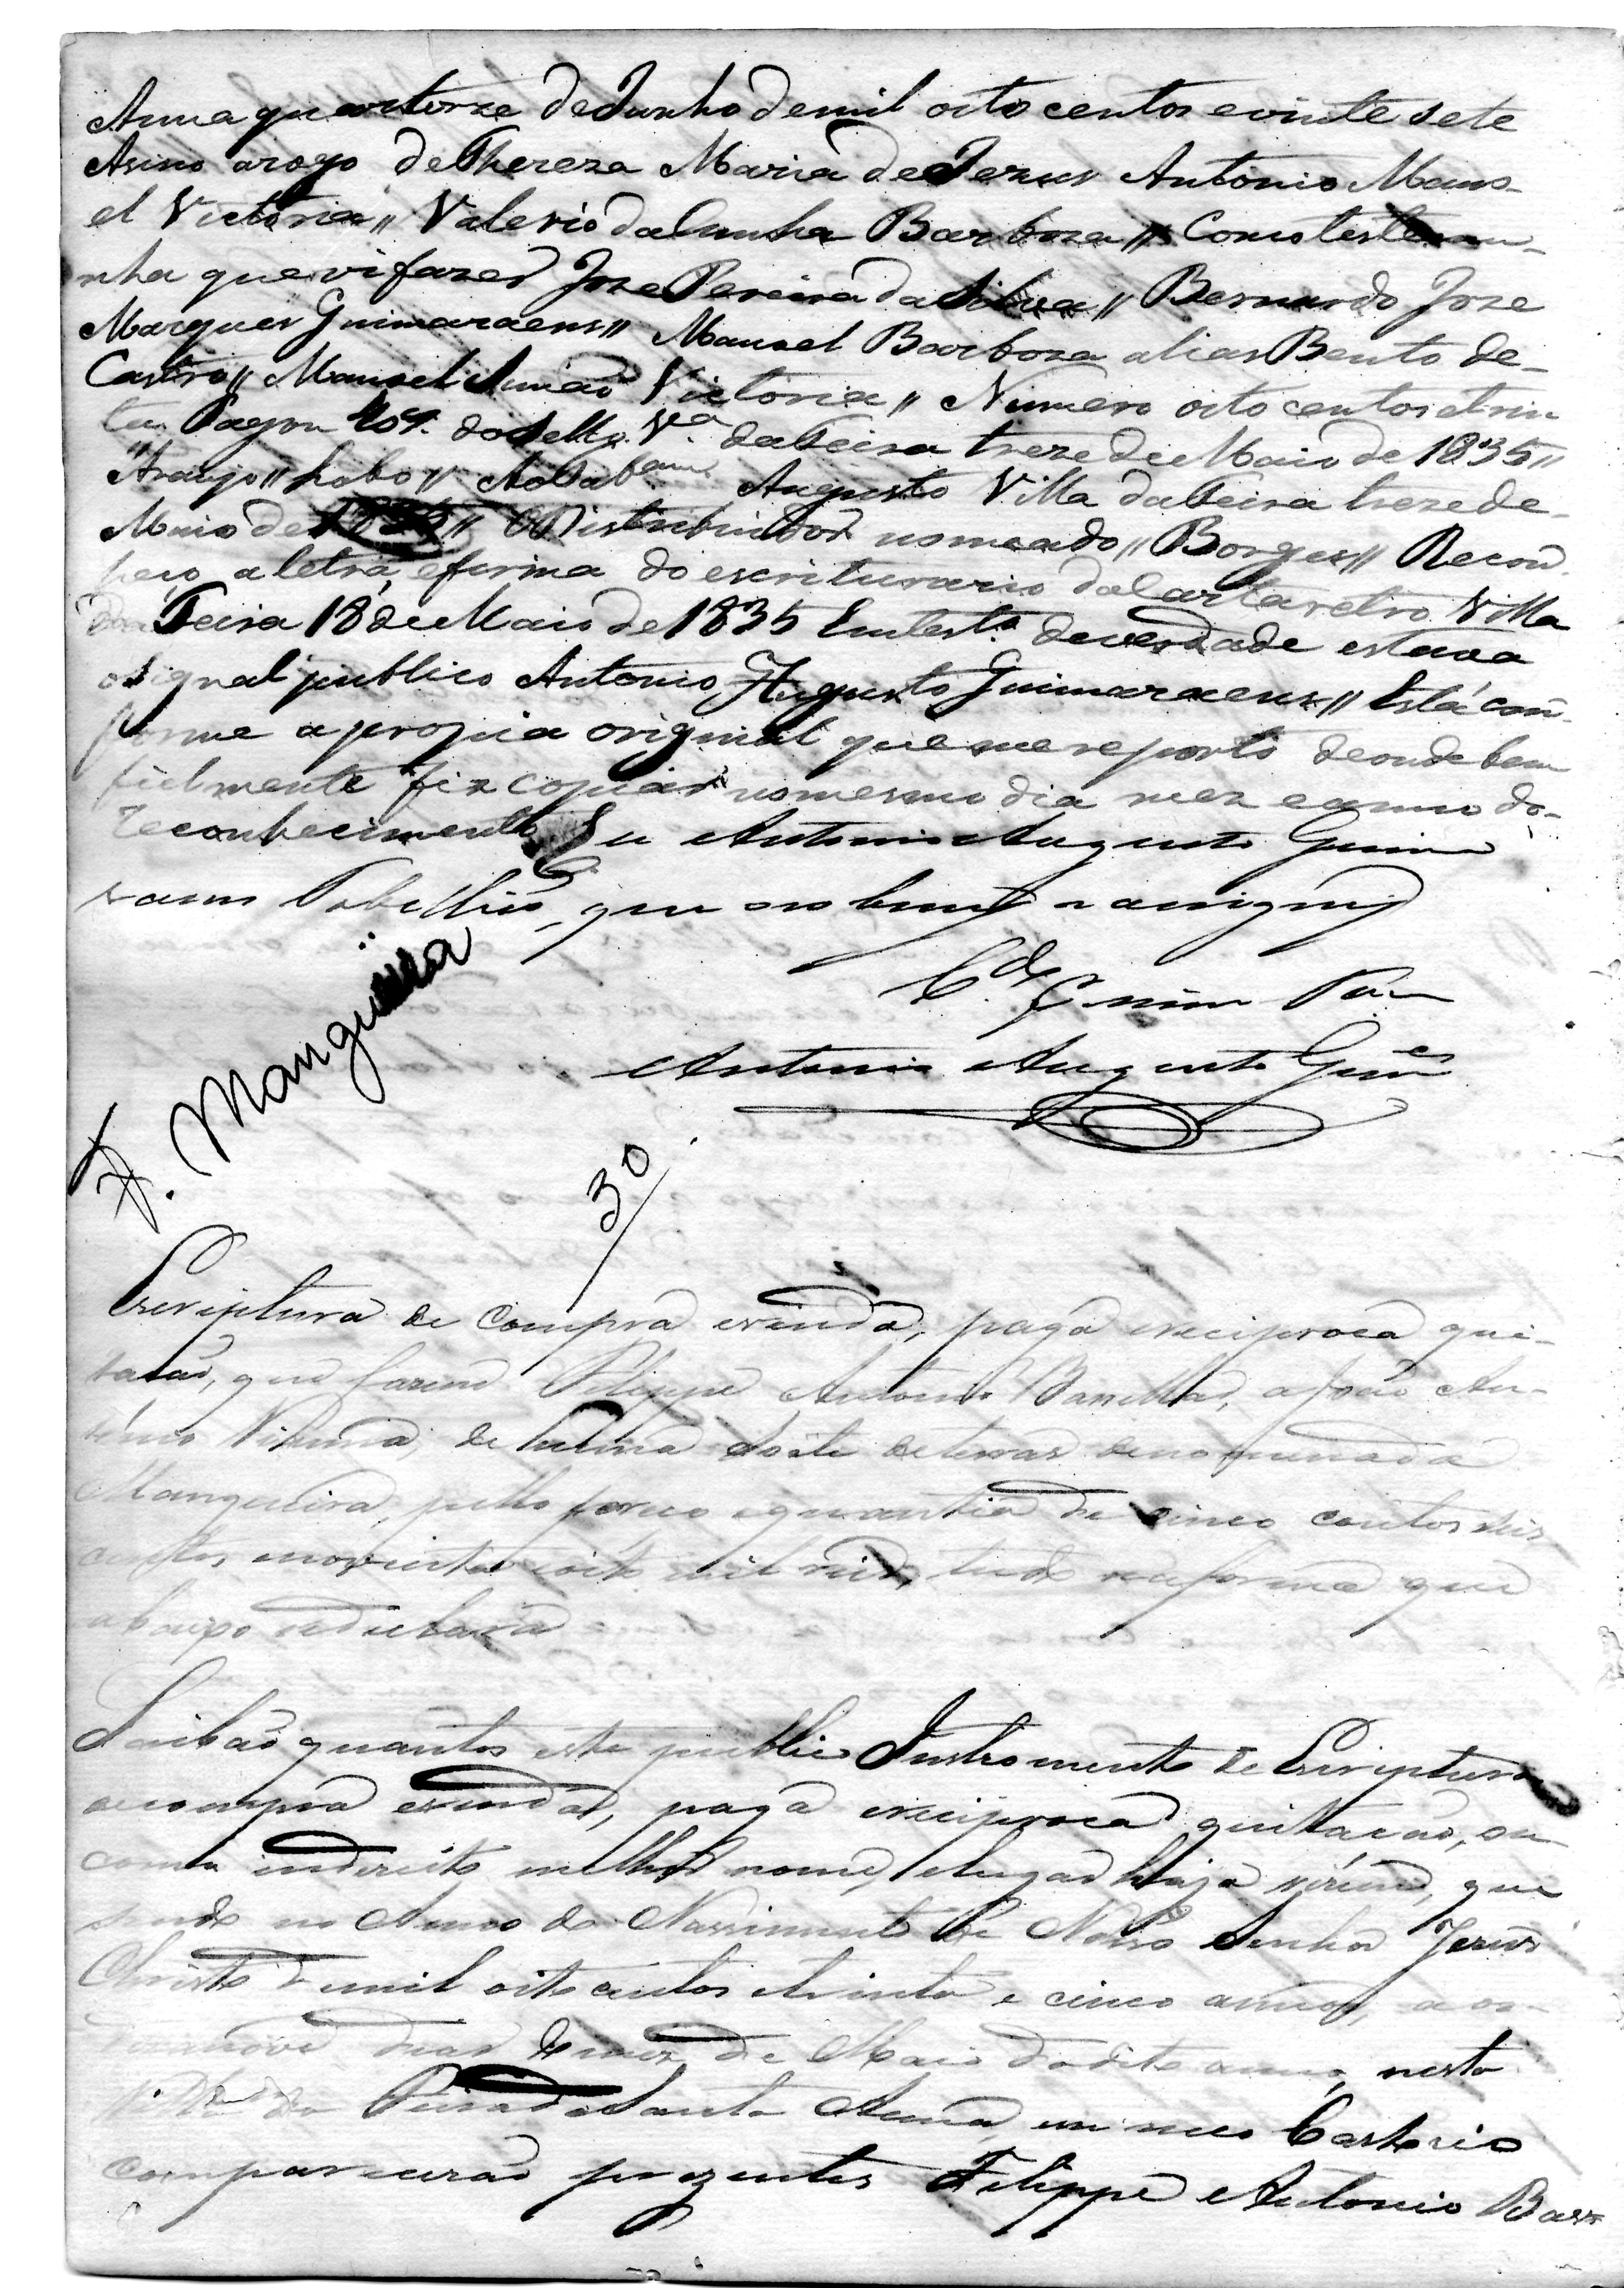 Anna quatorze de Junho de mil oito centos e vinte sete
Asino arogo de Thereza Maria de Jezus Antonio Mano-
el Victoria // Valerio da Cunha Barboza // Como testemu-
nha que vi fazer Joze Pereira da Silva // Bernardo Joze
Marques Guimaraens // Manoel Barboza alias Bento de-
Castro // Manoel Simião Victoria // Numero oito centos e trin
ta Pagou 40r. do Sello. Va. da Feira treze de Maio de 1835 //
Araujo // Lobo // Ao Tabam. Augusto Villa da Feira treze de-
Maio de // O Distribuidor nomeado // Borges // Recon
heço a letra, e firma do escriturario da Carta retro Villa
da Feira 18 de Maio de 1835 Em testo. de verdade estava
o signal publico Antonio Augusto Guimaraens // Está con-
forme a propia original que me reporto de onde bem
fielmente fiz copiar no mesmo dia mez e anno do-
reconhecimento Eu Antonio Augusto Guima
raens Tabellião, que o sobscrevy e asigney
Antonio Augusto Gues
F. Mangueira
30
Escriptura de compra evenda, paga ereciproca qui-
tasão, que fazem Felippe Antonio, a João An-
tonio Vianna, de huma sorte de terras denominada
Mangueira, pello preço e quantia de cinco contos seis
centos enoventa e oito mil reis, tudo na forma que
abaixo se declara
Saibão quantos este publico Instromento de Escriptura
de compra evenda, paga ereciproca quitação, ou
como indireito melhor nome, elugar haja virem, que
sendo no Anno do Nassimento de Nosso Senhor Jezus
Christo de mil oito centos etrinta e cinco annos, aos
dezanove dias do mez de Maio do dito anno, nesta
Villa da Feira de Santa Anna, em meo Cartorio
comparecerão prezentes Felippe Antonio Bar